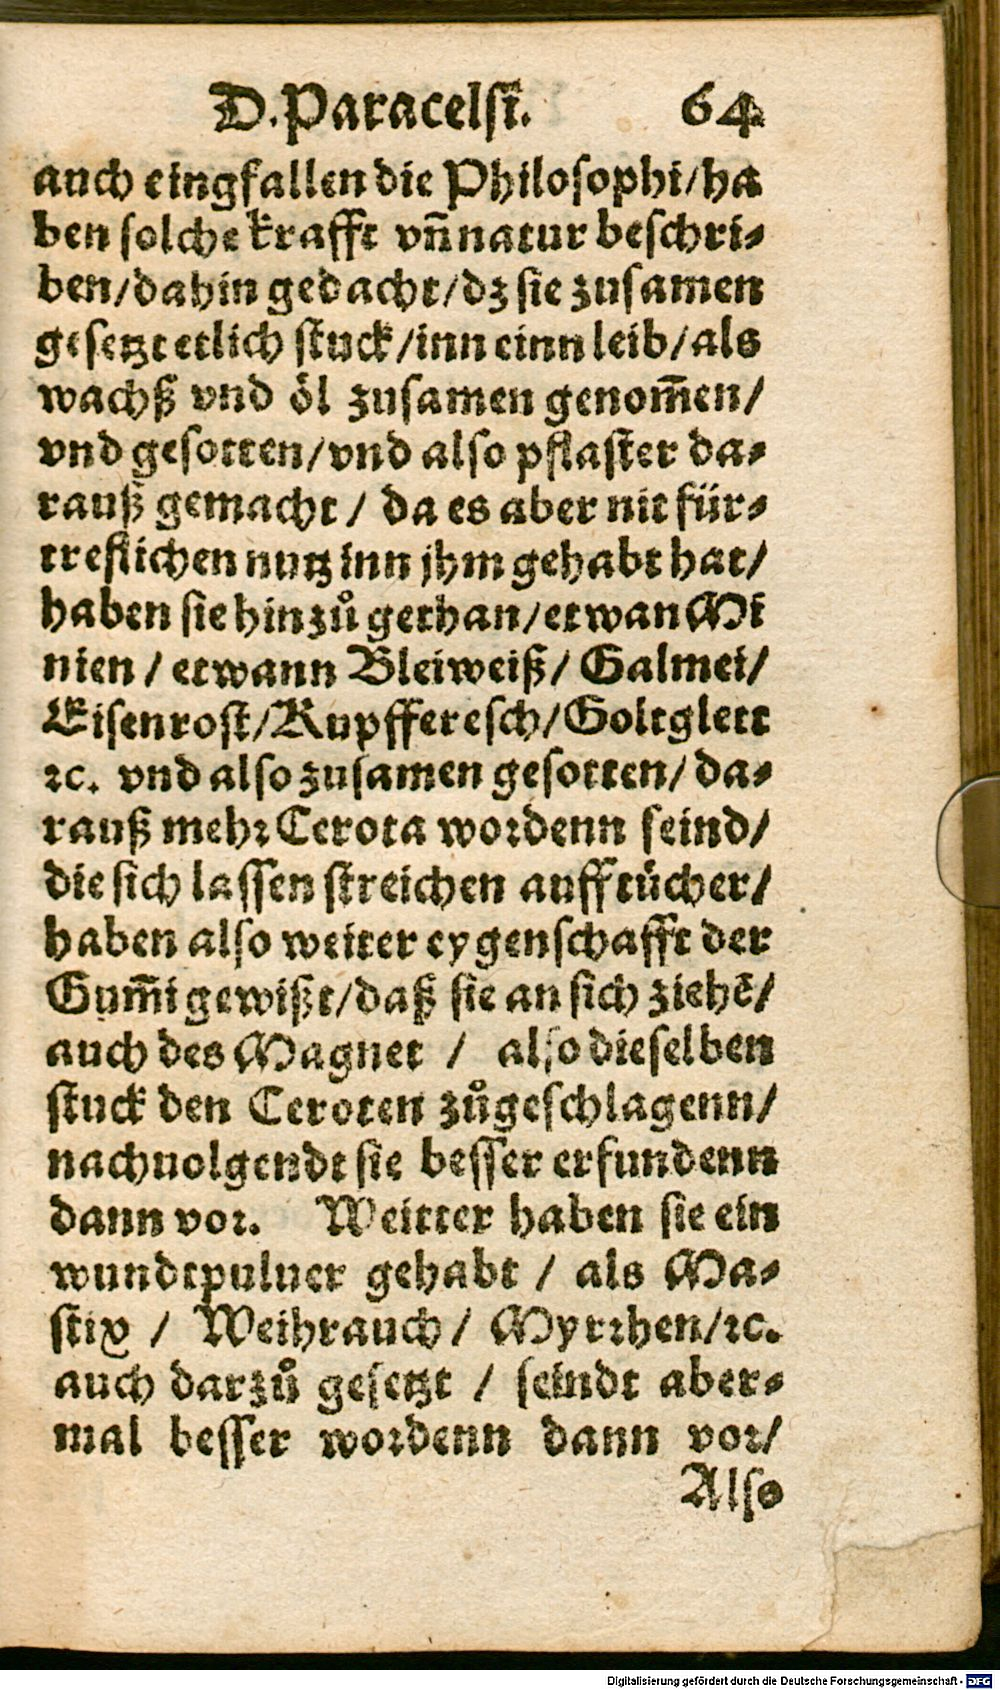 D. Paracelsi. 64
auch eingfallen die Philosophi/ha
ben solche krafft vñ natur beschri-
ben/dahin gedacht/dz sie zusamen
gesetzt etlich stuck/inn einn leib/als
wachß vnd öl zusamen genom̃en/
vnd gesotten/vnd also pflaster da-
rauß gemacht/ da es aber nit für-
treflichen nutz inn jhm gehabt hat/
haben sie hinzů gethan/etwan Mi
nien / etwann Bleiweiß/ Galmei/
Eisenrost/Kupfferesch/Goltglett
ꝛc. vnd also zusamen gesotten/ da-
rauß mehꝛ Cerota woꝛdenn seind/
die sich lassen streichen auff tücher/
haben also weiter eygenschafft der
Gum̃i gewißt/daß sie an sich ziehẽ/
auch des Magnet / also dieselben
stuck den Ceroten zůgeschlagenn/
nachuolgendt sie besser erfundenn
dann voꝛ. Weitter haben sie ein
wundtpuluer gehabt / als Ma-
stix / Weihrauch/ Myrꝛhen/ꝛc.
auch darzů gesetzt / seindt aber-
mal besser woꝛdenn dann voꝛ/
Also
Digitalisierung gefördert durch die Deutsche Forschungsgemeinschaft - DFG